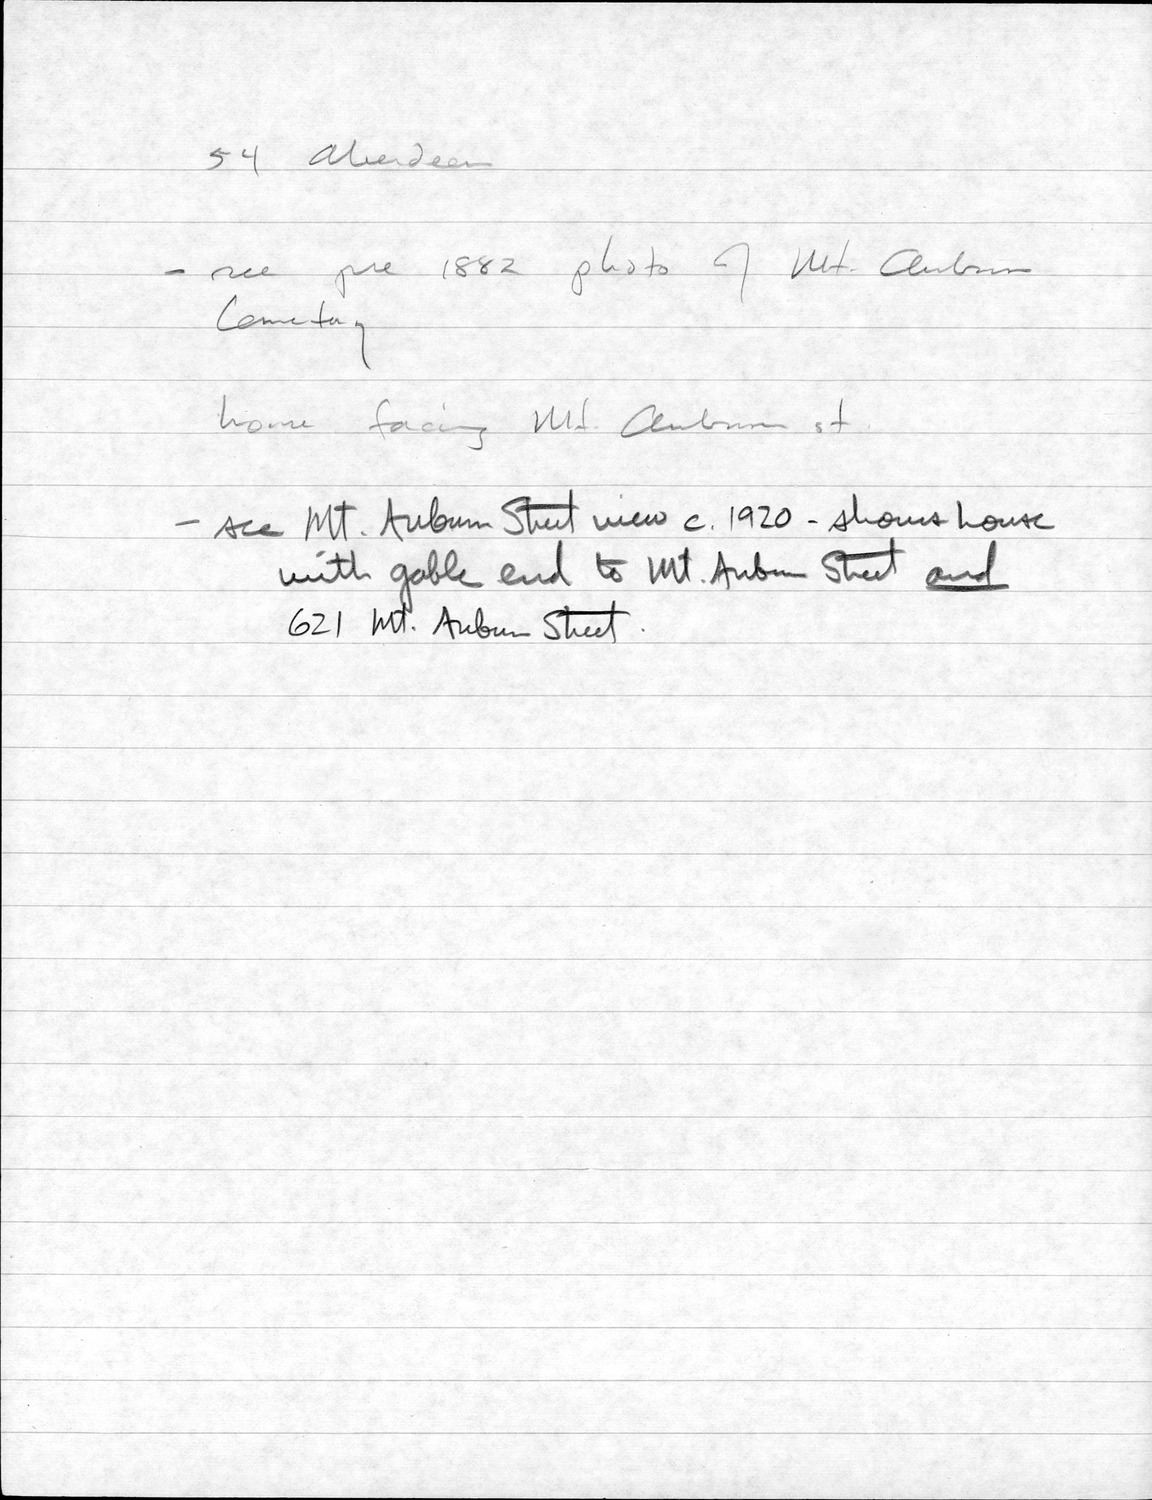 54 Aberdeen
- see pre 1882 photo of Mt. Auburn
Cemetery
house facing Mt. Auburn st.
- see Mt. Auburn Street view c. 1920 - shows house
with gable end to Mt. Auburn Street and
621 Mt. Auburn Street.